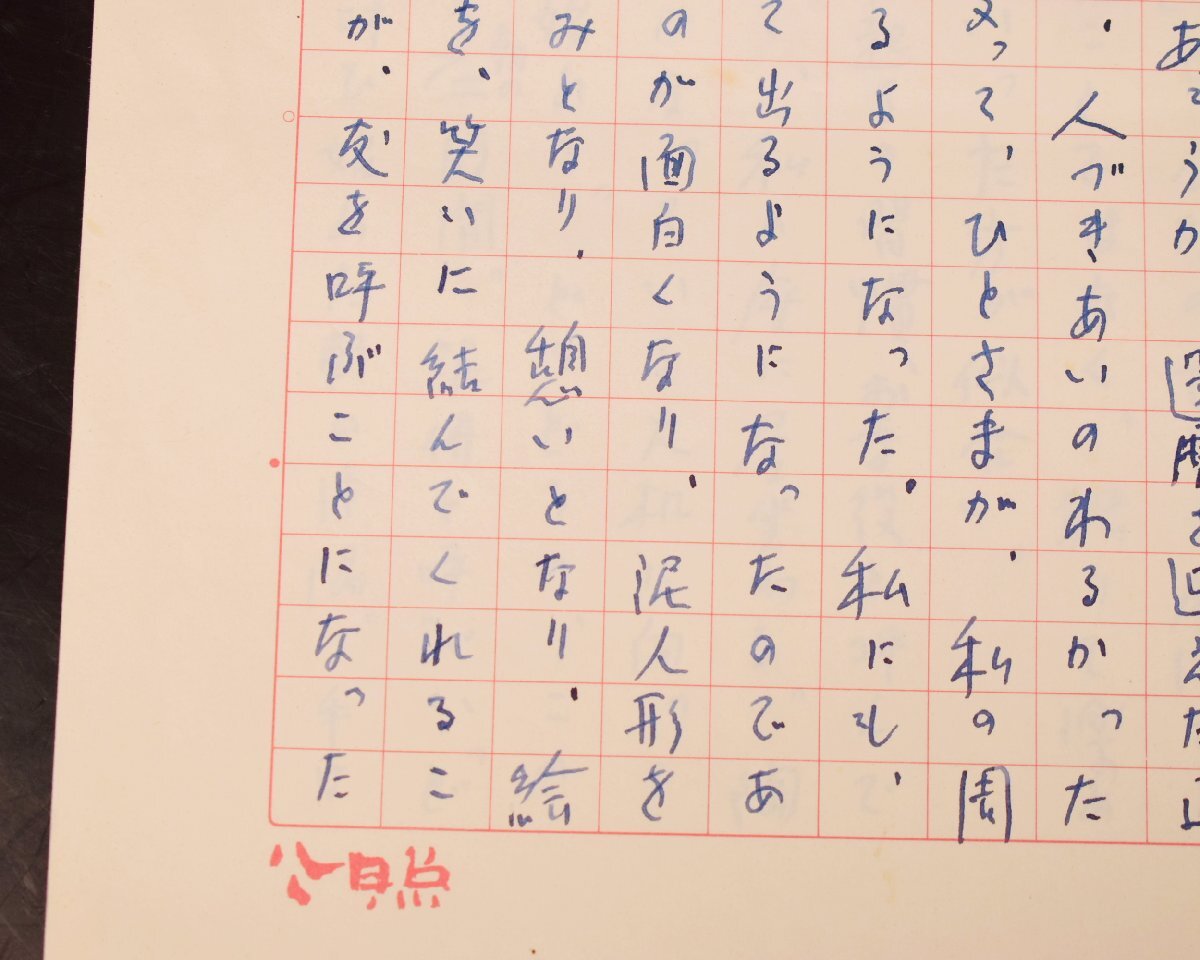 あてうか 還暦を迎えた
、人づきあいのわるかった
って、ひとさまが、私の周
るようになった。私にも、
て出るようになったのであ
のが面白くなり、泥人形を
みとなり、憩いとなり、絵
を、笑いに結んでくれるこ
が、友を呼ぶことになった